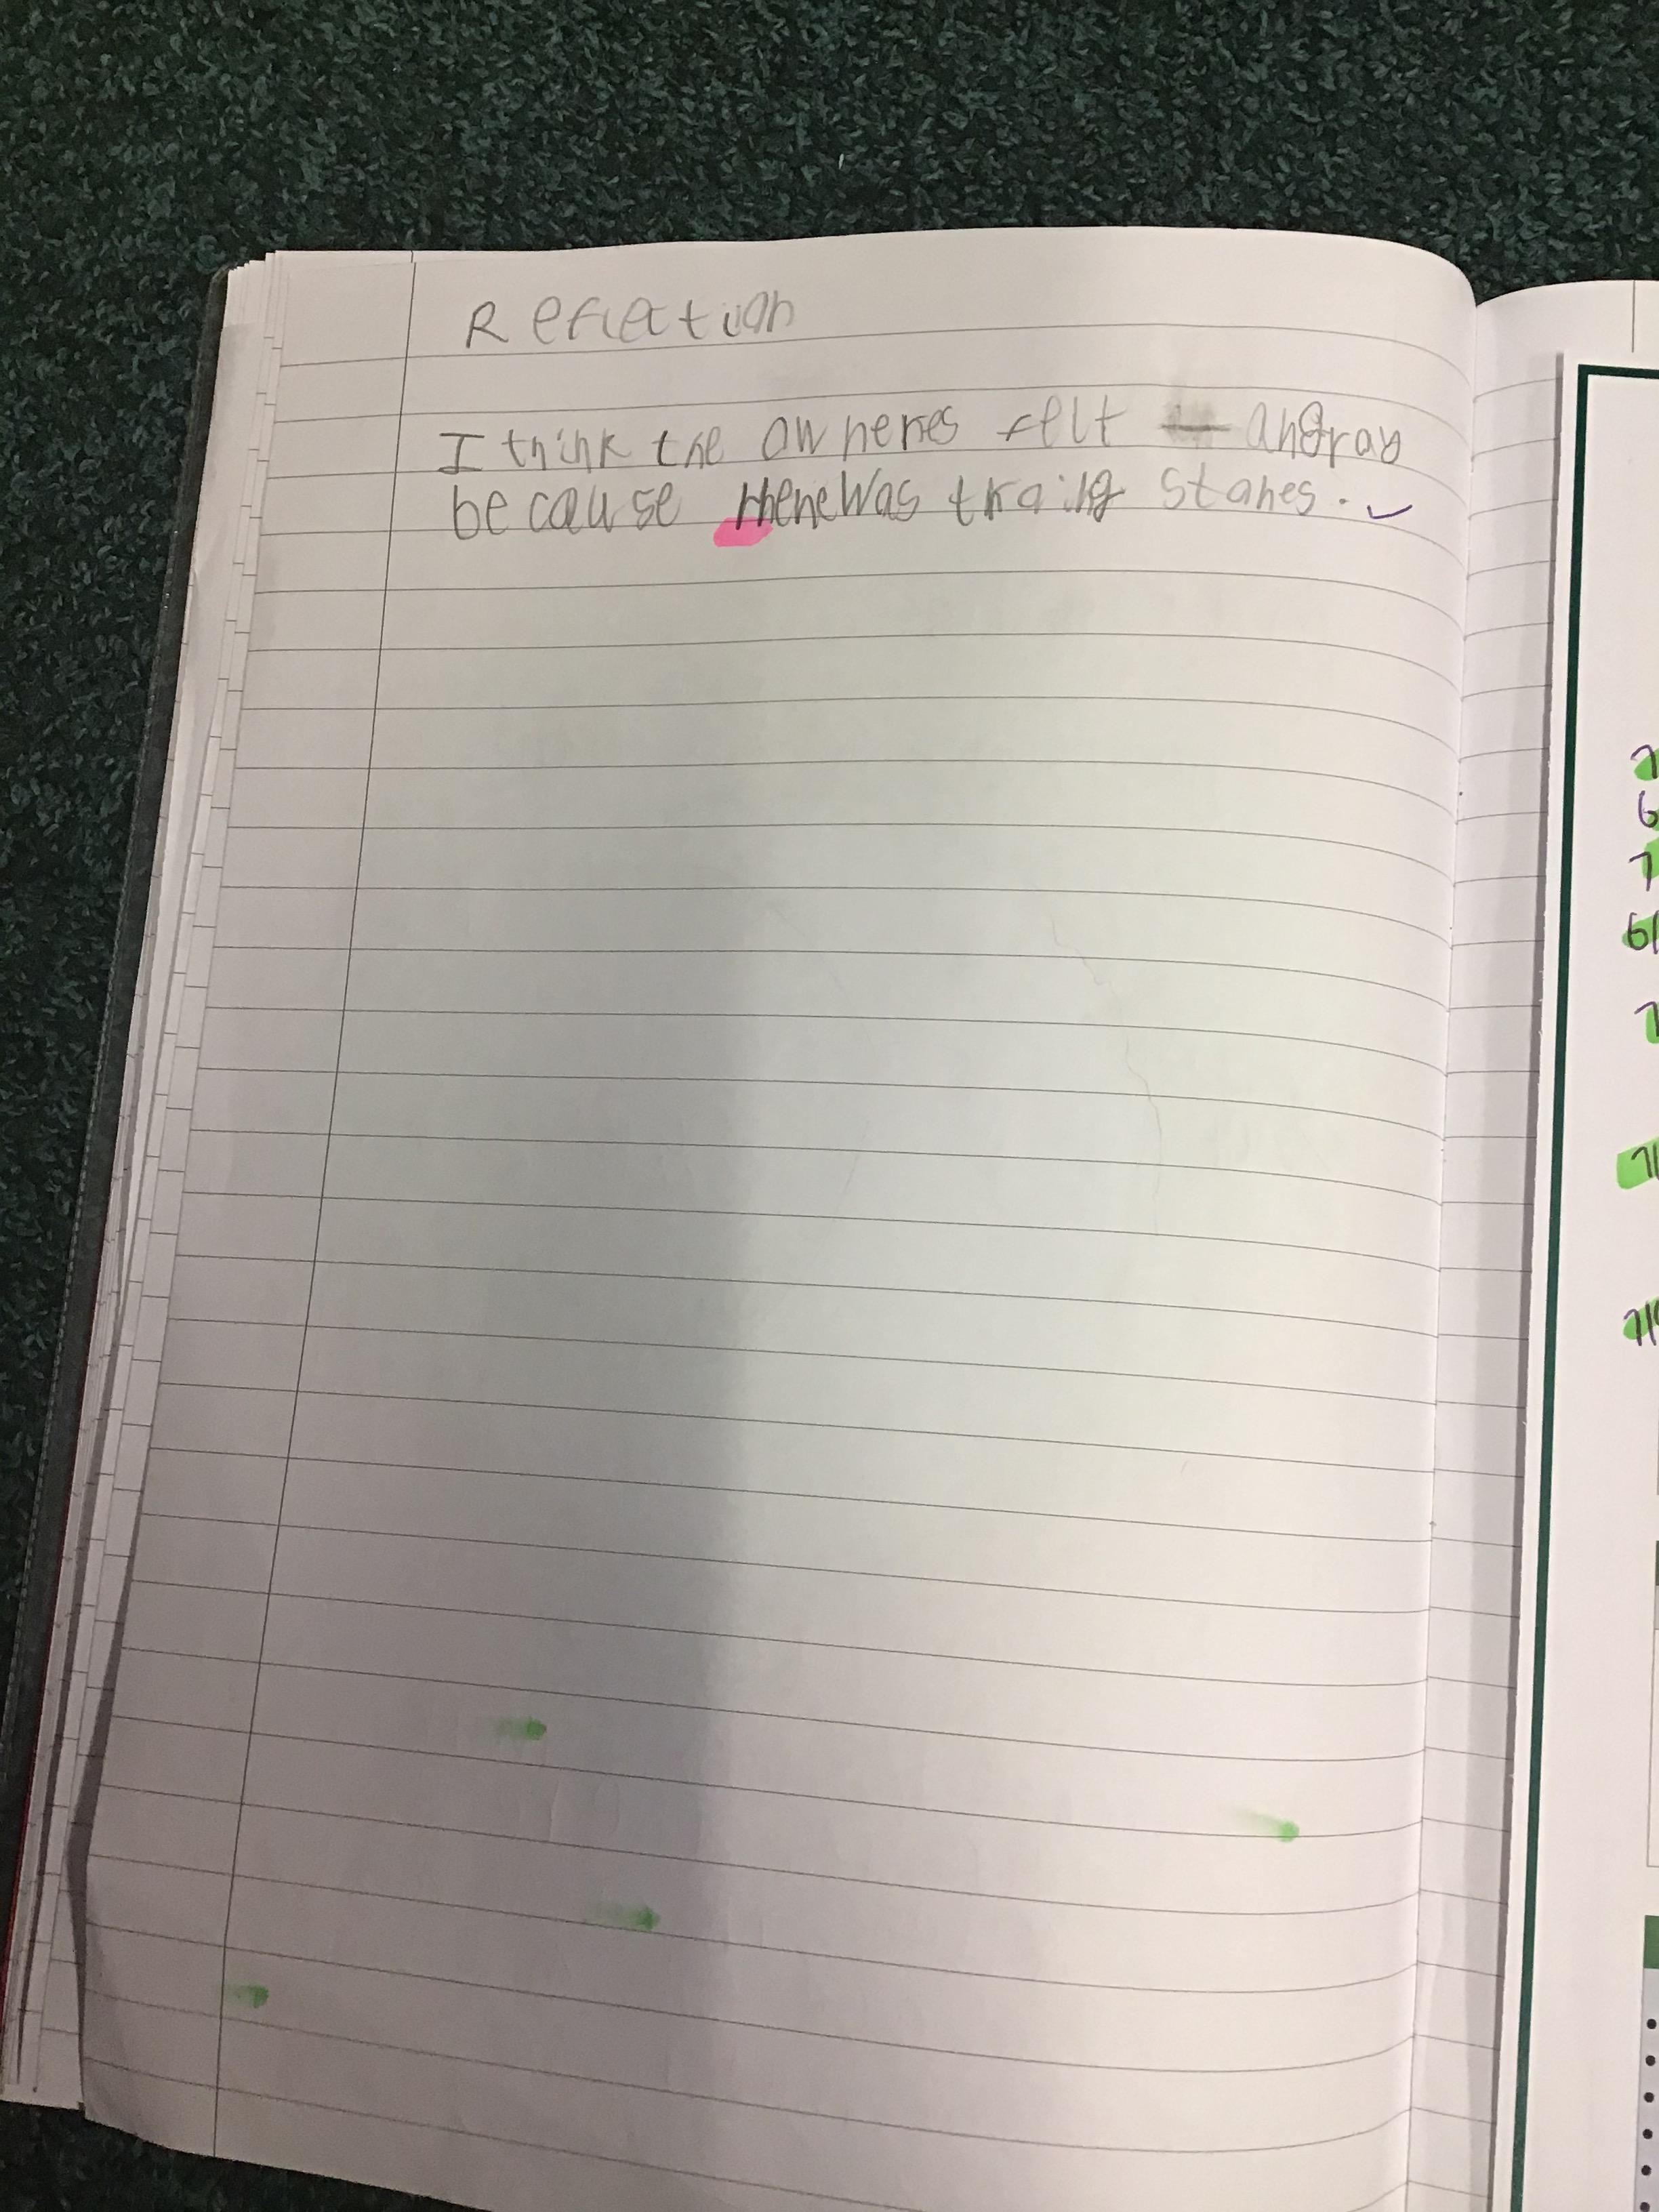 Reflection
I think the owneres felt angray
because there was traing stares.
7
6
7
6
7
7
7